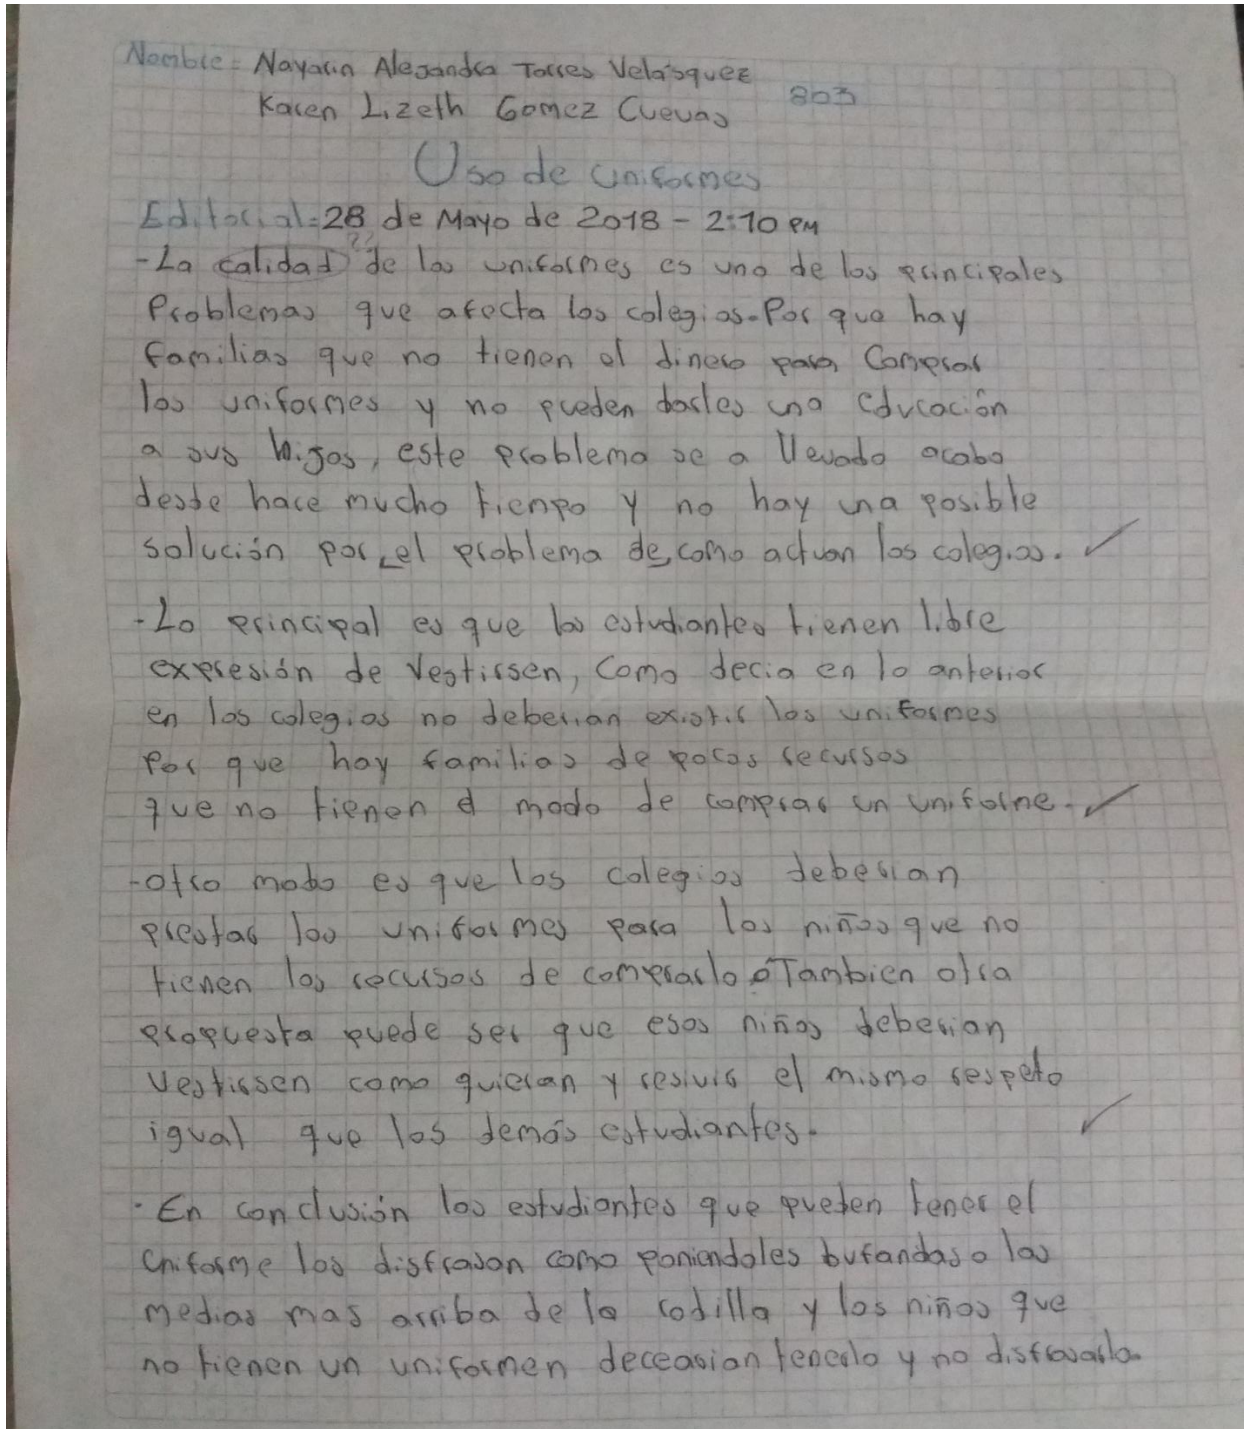 Nombre = Nayarin Alejandra Torres Velásquez
803
Karen Lizeth Gomez Cuevas
Uso de uniformes
Editorial = 28 de Mayo de 2018 - 2:10 PM
??
- La calidad de los uniformes es uno de los principales
Problemas que afecta los colegios. Por que hay
familias que no tienen el dinero para Comprar
los uniformes y no pueden darles una educación
a sus hijos, este problema se a llevado acabo
desde hace mucho tienpo y no hay una posible
solución por el problema de como actuan los colegios.
- Lo principal es que los estudiantes tienen libre
expresión de Vestirsen, Como decia en lo anterior
en los colegios no deberian existir los uniformes
Por que hay familias de pocos recursos
que no tienen el modo de comprar un uniforne.
- otro modo es que los colegios deberian
prestar los uniformes para los niños que no
tienen los recursos de comprarlo o Tambien otra
propuesta puede ser que esos niños deberian
Vestirsen como quieran y resivir el mismo respeto
igual que los demás estudiantes.
- En conclusión los estudiantes que pueden tener el
uniforme los disfrasan como poniendoles bufandas o las
medias mas arriba de la rodilla y los niños que
no tienen un uniformen decearian tenerlo y no disfrasarla.